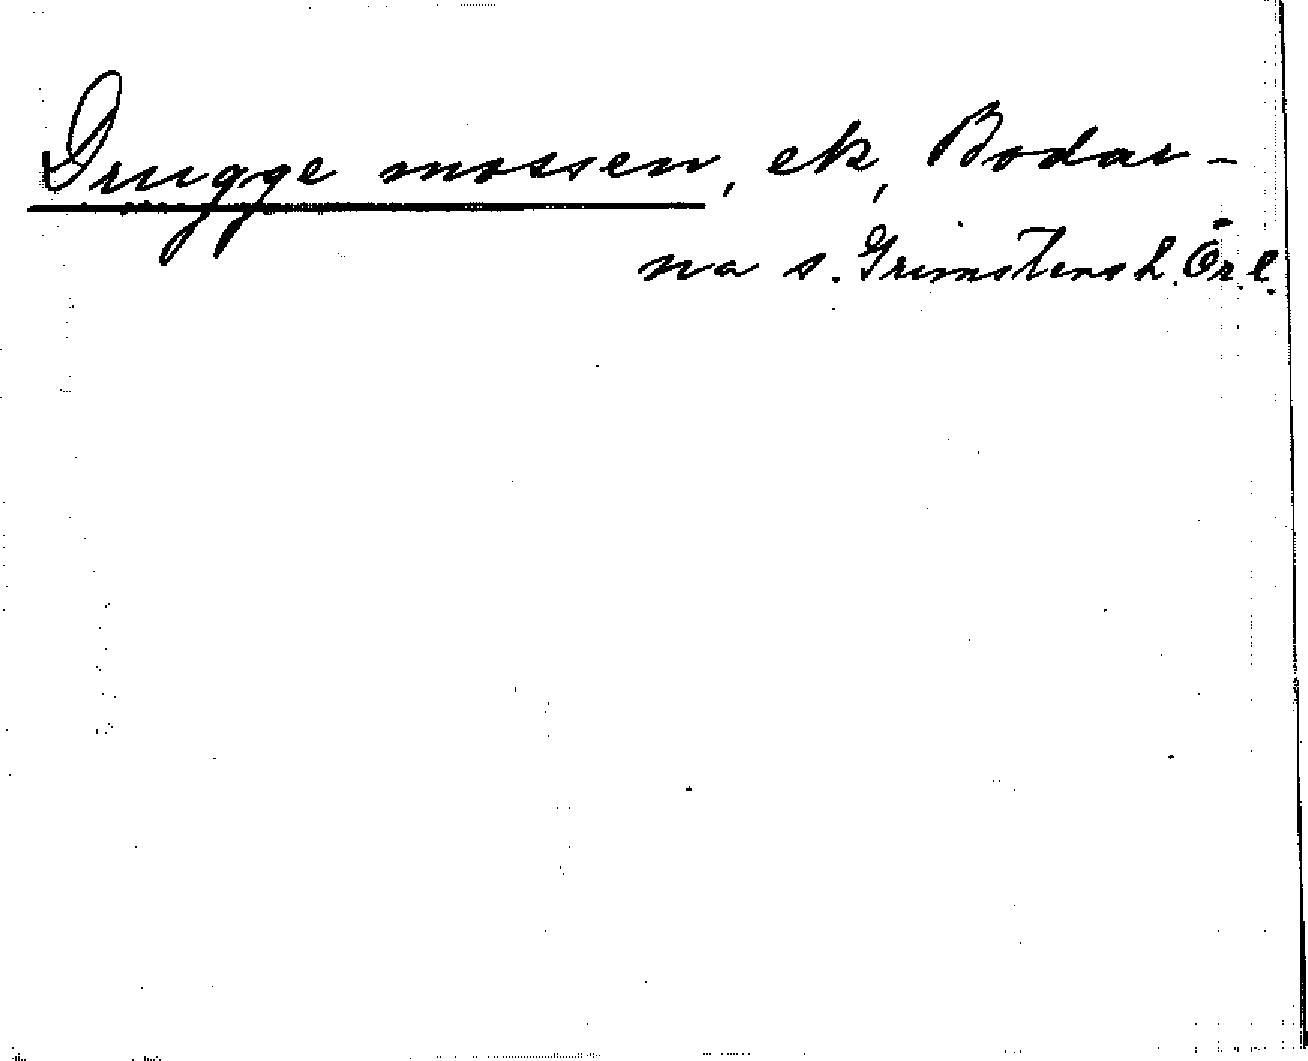 Drugge mossen, ek, Bodar-
na s. Grimstens h. Ör. l.